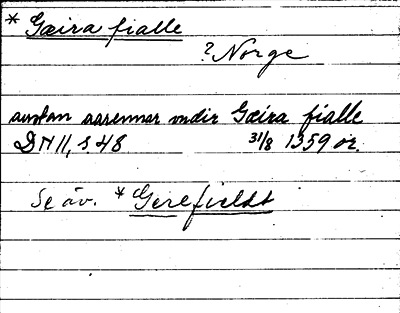 * Gæira fialle
? Norge
austan aarennar vndir Gæira fialle
DN II, s 48 31/8 1359 or.
Se äv. * Gerefieldt